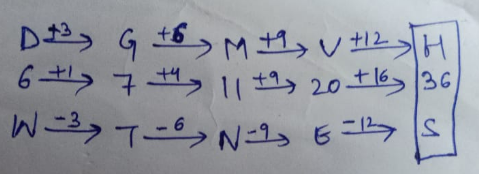 D +3→ G +6→ M +9→ V +12→ H
6 +1→ 7 +4→ 11 +9→ 20 +16→ 36
W -3→ T -6→ N -9→ E -12→ S